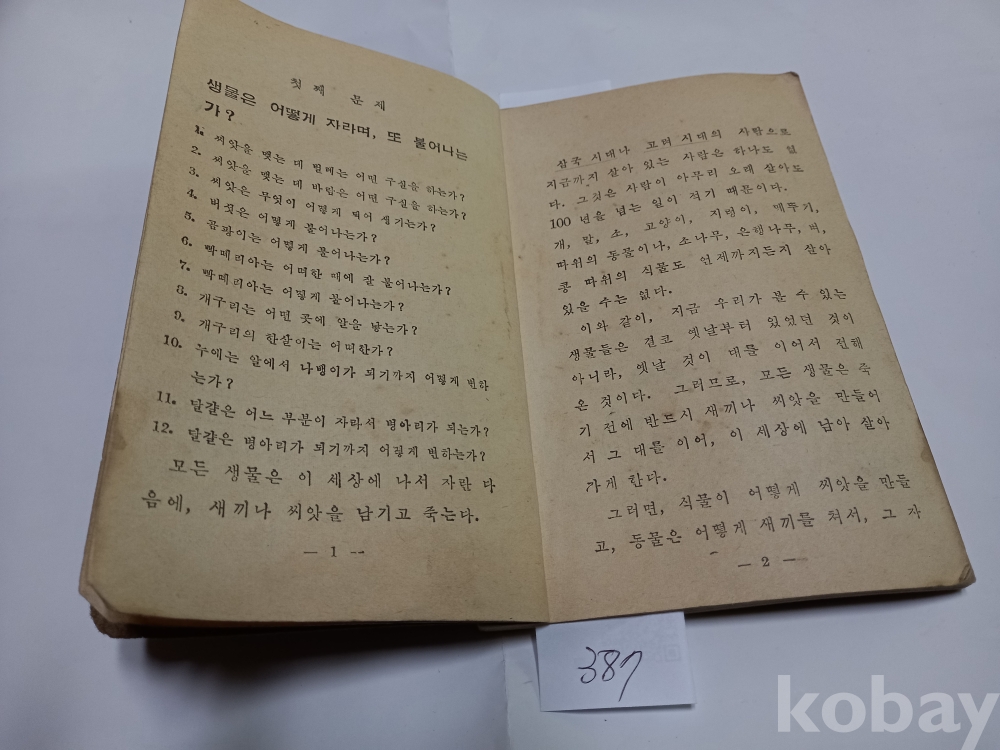 첫째 문제
생물은 어떻게 자라며, 또 불어나는
가?
1. 씨앗을 맺는 데 벌레는 어떤 구실을 하는가?
2. 씨앗을 맺는 데 바람은 어떤 구실을 하는가?
3. 씨앗은 무엇이 어떻게 되어 생기는가?
4. 버섯은 어떻게 불어나는가?
5. 곰팡이는 어떻게 불어나는가?
6. 빡떼리아는 어떠한 때에 잘 불어나는가?
7. 빡떼리아는 어떻게 불어나는가?
8. 개구리는 어떤 곳에 알을 낳는가?
9. 개구리의 한살이는 어떠한가?
10. 누에는 알에서 나뱅이가 되기까지 어떻게 변하
는가?
11. 달걀은 어느 부분이 자라서 병아리가 되는가?
12. 달걀은 병아리가 되기까지 어떻게 변하는가?
모든 생물은 이 세상에 나서 자란 다
음에, 새끼나 씨앗을 남기고 죽는다.
— 1 —
삼국 시대나 고려 시대의 사람으로
지금까지 살아 있는 사람은 하나도 없
다. 그것은 사람이 아무리 오래 살아도
100 년을 넘는 일이 적기 때문이다.
개, 말, 소, 고양이, 지렁이, 메뚜기,
따위의 동물이나, 소나무, 은행나무, 벼,
콩 따위의 식물도 언제까지든지 살아
있을 수는 없다.
이와 같이, 지금 우리가 볼 수 있는
생물들은 결코 옛날부터 있었던 것이
아니라, 옛날 것이 대를 이어서 전해
온 것이다. 그러므로, 모든 생물은 죽
기 전에 반드시 새끼나 씨앗을 만들어
서 그 대를 이어, 이 세상에 남아 살아
가게 한다.
그러면, 식물이 어떻게 씨앗을 만들
고, 동물은 어떻게 새끼를 쳐서, 그 자
— 2 —
387
kobay